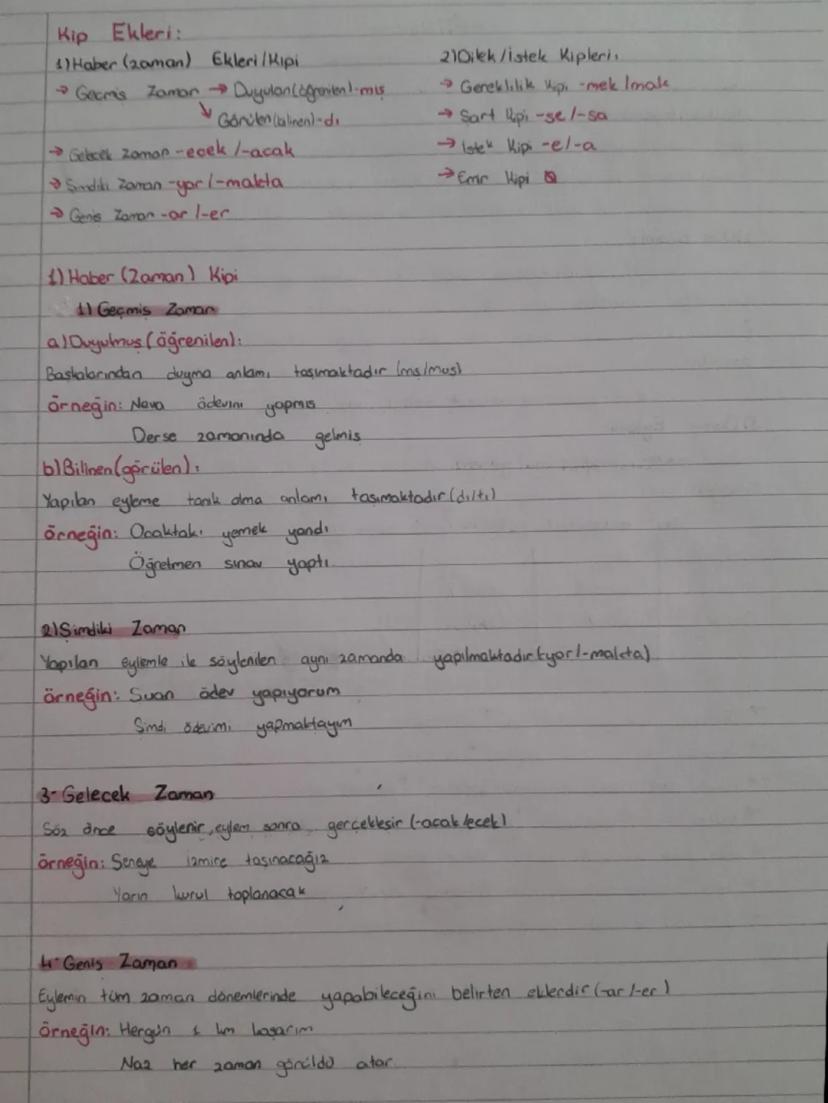 Kip Ekleri:
1) Haber (zaman) Ekleri/Kipi
→ Geçmiş Zaman → Duyulan (öğrenilen) -mış
↘ Görülen (bilinen) -dı
→ Gelecek zaman -ecek /-acak
→ Şimdiki Zaman -yor /-makta
→ Geniş Zaman -ar /-er
2) Dilek/istek Kipleri:
→ Gereklilik Kipi -mek /mak
→ Şart Kipi -se /-sa
→ İstek Kipi -e/-a
→ Emir Kipi Ø
1) Haber (Zaman) Kipi
1) Geçmiş Zaman
a) Duyulmuş (öğrenilen):
Başkalarından duyma anlamı taşımaktadır (mış/muş)
örneğin: ödevini yapmış
Derse zamanında gelmiş
b) Bilinen (görülen):
Yapılan eyleme tanık olma anlamı taşımaktadır (dı/tı)
örneğin: Ocaktakı yemek yandı
Öğretmen sınav yaptı
2) Şimdiki Zaman
Yapılan eylemle ile söylenilen aynı zamanda yapılmaktadır (-yor/-makta)
örneğin: Şuan ödev yapıyorum
Şimdi ödevimi yapmaktayım
3- Gelecek Zaman
Söz önce söylenir, eylem sonra gerçekleşir (-acak/ecek)
örneğin: Seneye izmire taşınacağız
Yarın kurul toplanacak
4- Geniş Zaman
Eylemin tüm zaman dönemlerinde yapabileceğini belirten eklerdir (-ar /-er)
örneğin: Hergün km koşarım
Naz her zaman görüldü atar